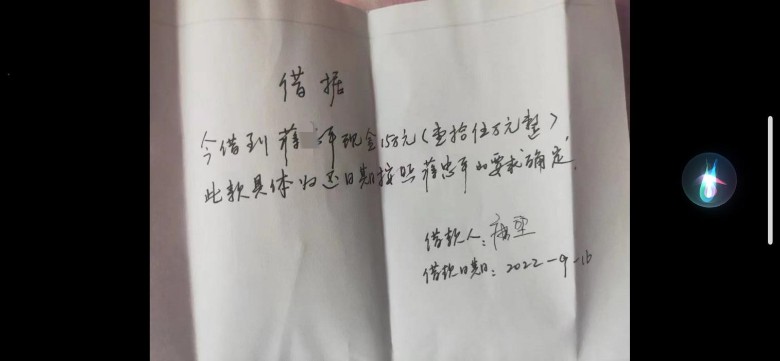 借据
今借到蒋 平现金15万元(壹拾伍万元整)
此款具体归还日期按照蒋忠平的要求确定.
借款人:
借款日期:2022-9-16